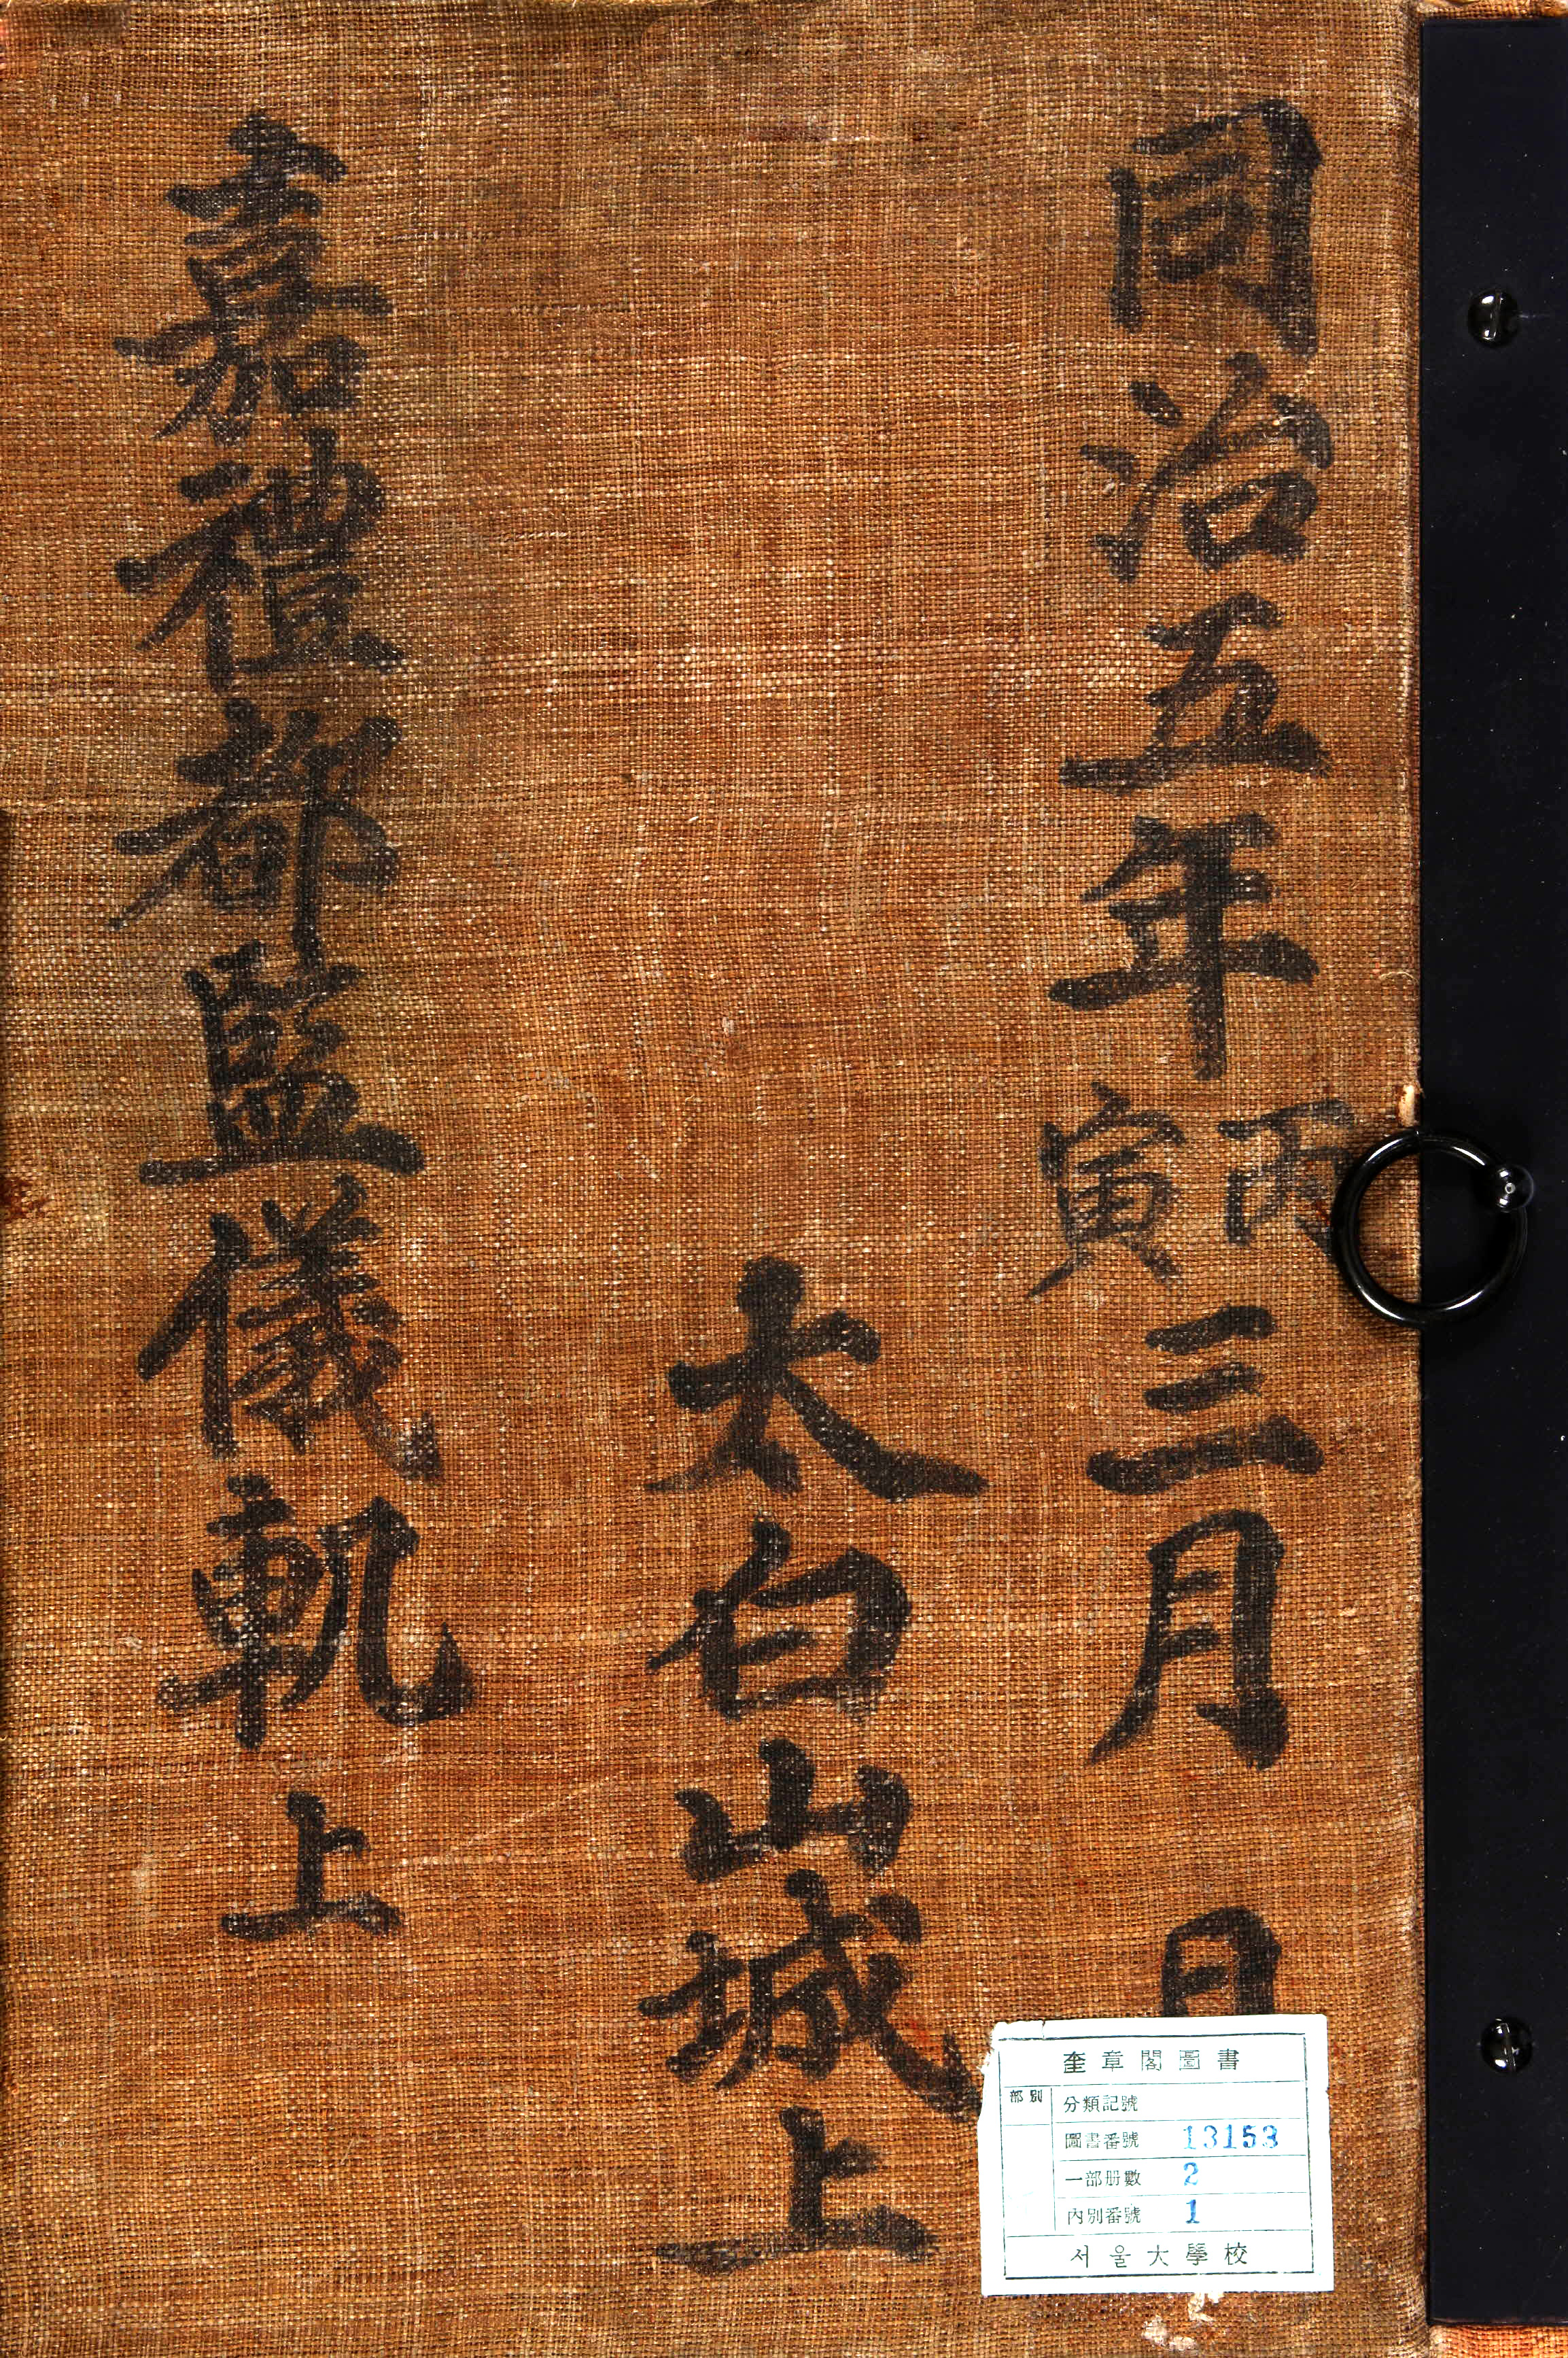 同治五年丙寅三月 日
太白山城上
嘉禮都監儀軌 上
奎章閣圖書
部別
分類記號
圖書番號 13153
一部册數 2
內別番號 1
서울大學校